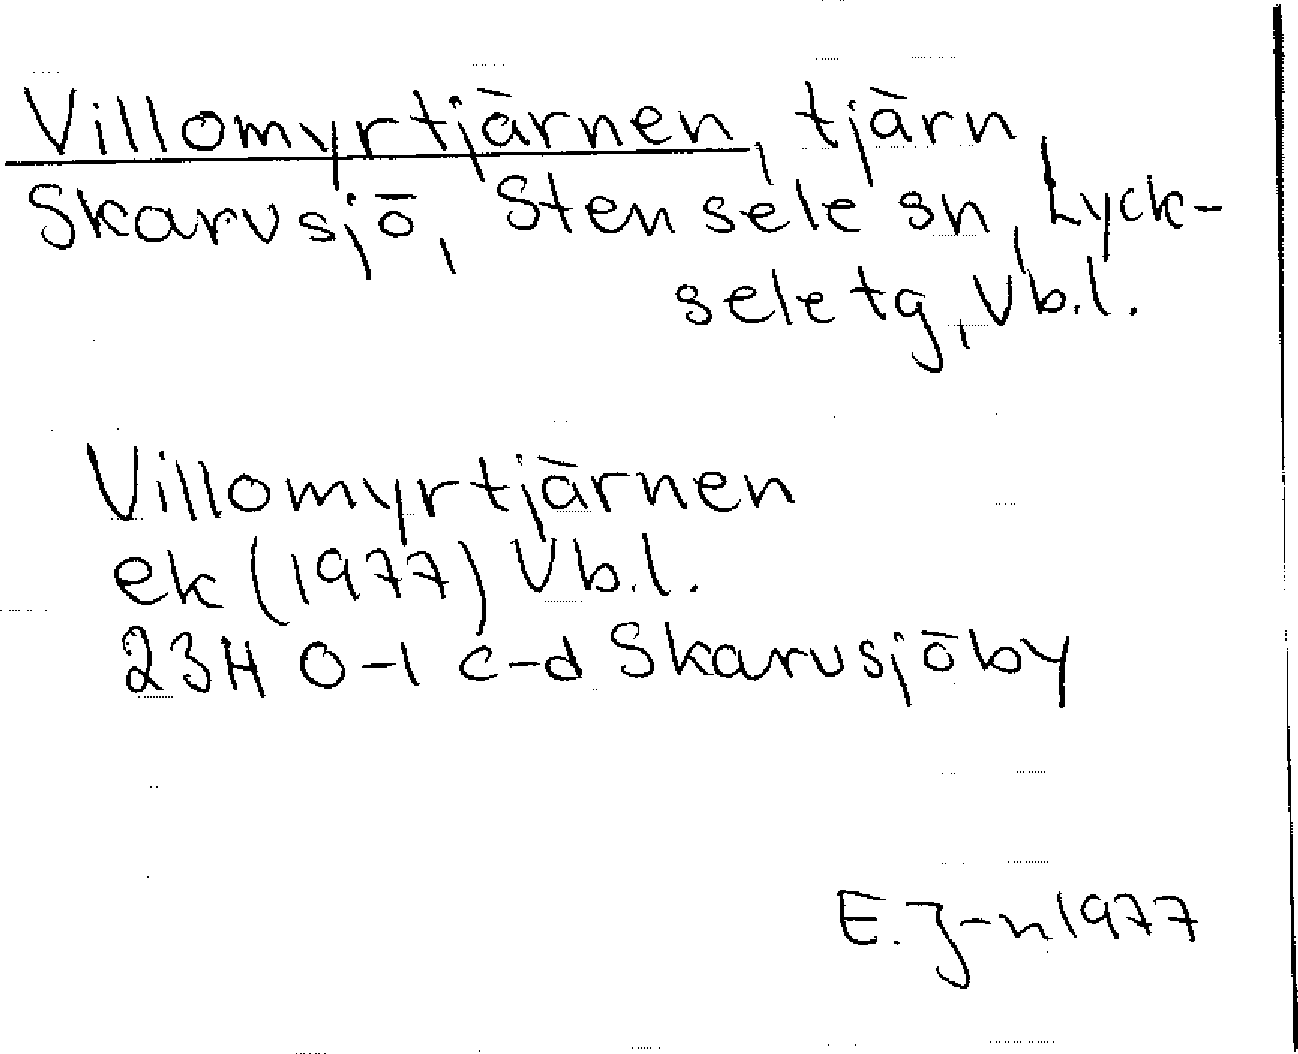 Villomyrtjärnen, tjärn,
Skarvsjö, Stensele sn, Lyck-
sele tg, Vb.l.
Villomyrtjärnen
ek (1977) Vb.l.
23H 0-1 c-d Skarvsjöby
E. J-n 1977